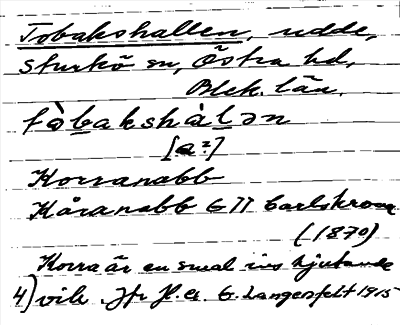 Tobakshallen, udde,
Sturkö sn, Östra hd,
Blek. län.
tòbakshàlən
[a²?]
Korranabb
Kåranabb GTT Carlskrona
(1879)
Korra är en smal inskjutande
4) vik. Jfr H. a. G. Langenfelt 1915